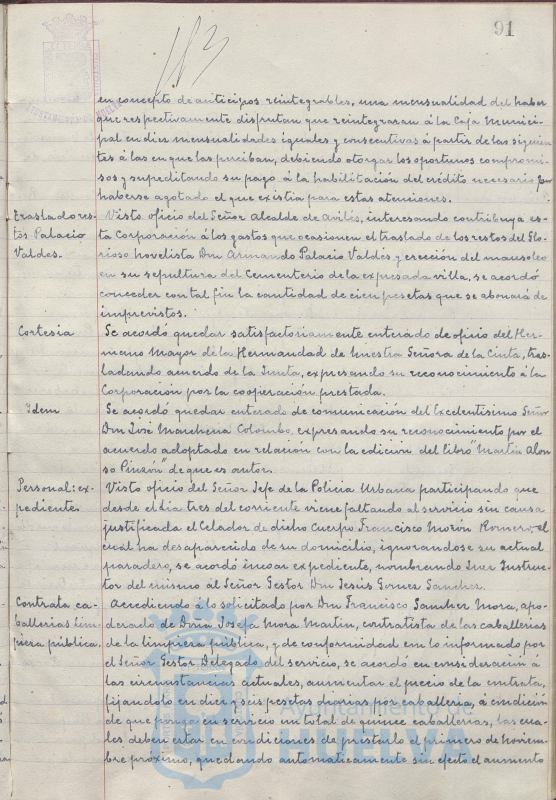 91
183
en concepto de anticipos reintegrables, una mensualidad del haber
que respectivamente disfrutan que reintegraran á la Caja Munici-
pal en diez mensualidades iguales y consecutivas á partir de las siguien-
tes á las en que las perciban, debiendo otorgar los oportunos compromi-
sos y supeditando su pago á la habilitación del crédito necesario por
haberse agotado el que existia para estas atenciones.
Traslado res-
tos Palacio
Valdes.
Visto oficio del Señor Alcalde de Avilés, interesando contribuya es-
ta Corporación á los gastos que ocasionen el traslado de los restos del Glo-
rioso novelista Don Armando Palacio Valdés y erección del mausoleo
en su sepultura del Cementerio de la expresada villa, se acordó
conceder con tal fin la cantidad de cien pesetas que se abonará de
imprevistos.
Cortesia
Se acordó quedar satisfactoriamente enterado de oficio del Her-
mano Mayor de la Hermandad de Nuestra Señora de la Cinta, tras-
ladando acuerdo de la Junta, expresando su reconocimiento á la
Corporación por la cooperación prestada.
Idem
Se acordó quedar enterado de comunicación del Excelentisimo Señor
Don José Marchena Colombo, expresando su reconocimiento por el
acuerdo adoptado en relación con la edicion del libro "Martin Alon-
so Pinzón" de que es autor.
Personal: ex-
pediente.
Visto oficio del Señor Jefe de la Policia Urbana participando que
desde el dia tres del corriente viene faltando al servicio sin causa
justificada el Celador de dicho Cuerpo Francisco Morón Romero, el
cual ha desaparecido de su domicilio, ignorandose su actual
paradero, se acordó incoar expediente, nombrando Juez Instruc-
tor del mismo al Señor Gestor Don Jesus Gomez Sanchez.
Contrata ca-
ballerias lim-
pieza pública.
Accediendo á lo solicitado por Don Francisco Sanchez Mora, apo-
derado de Doña Josefa Mora Martin, contratista de las caballerias
de la limpieza pública, y de conformidad con lo informado por
el Señor Gestor Delegado del servicio, se acordó en consideración á
las circunstancias actuales, aumentar el precio de la contrata,
fijandolo en diez y seis pesetas diarias por caballeria, á condición
de que ponga en servicio un total de quince caballerias, las cua-
les deben estar en condiciones de prestarlo el primero de noviem-
bre próximo, quedando automaticamente sin efecto el aumento
Ayuntamiento
HUELVA